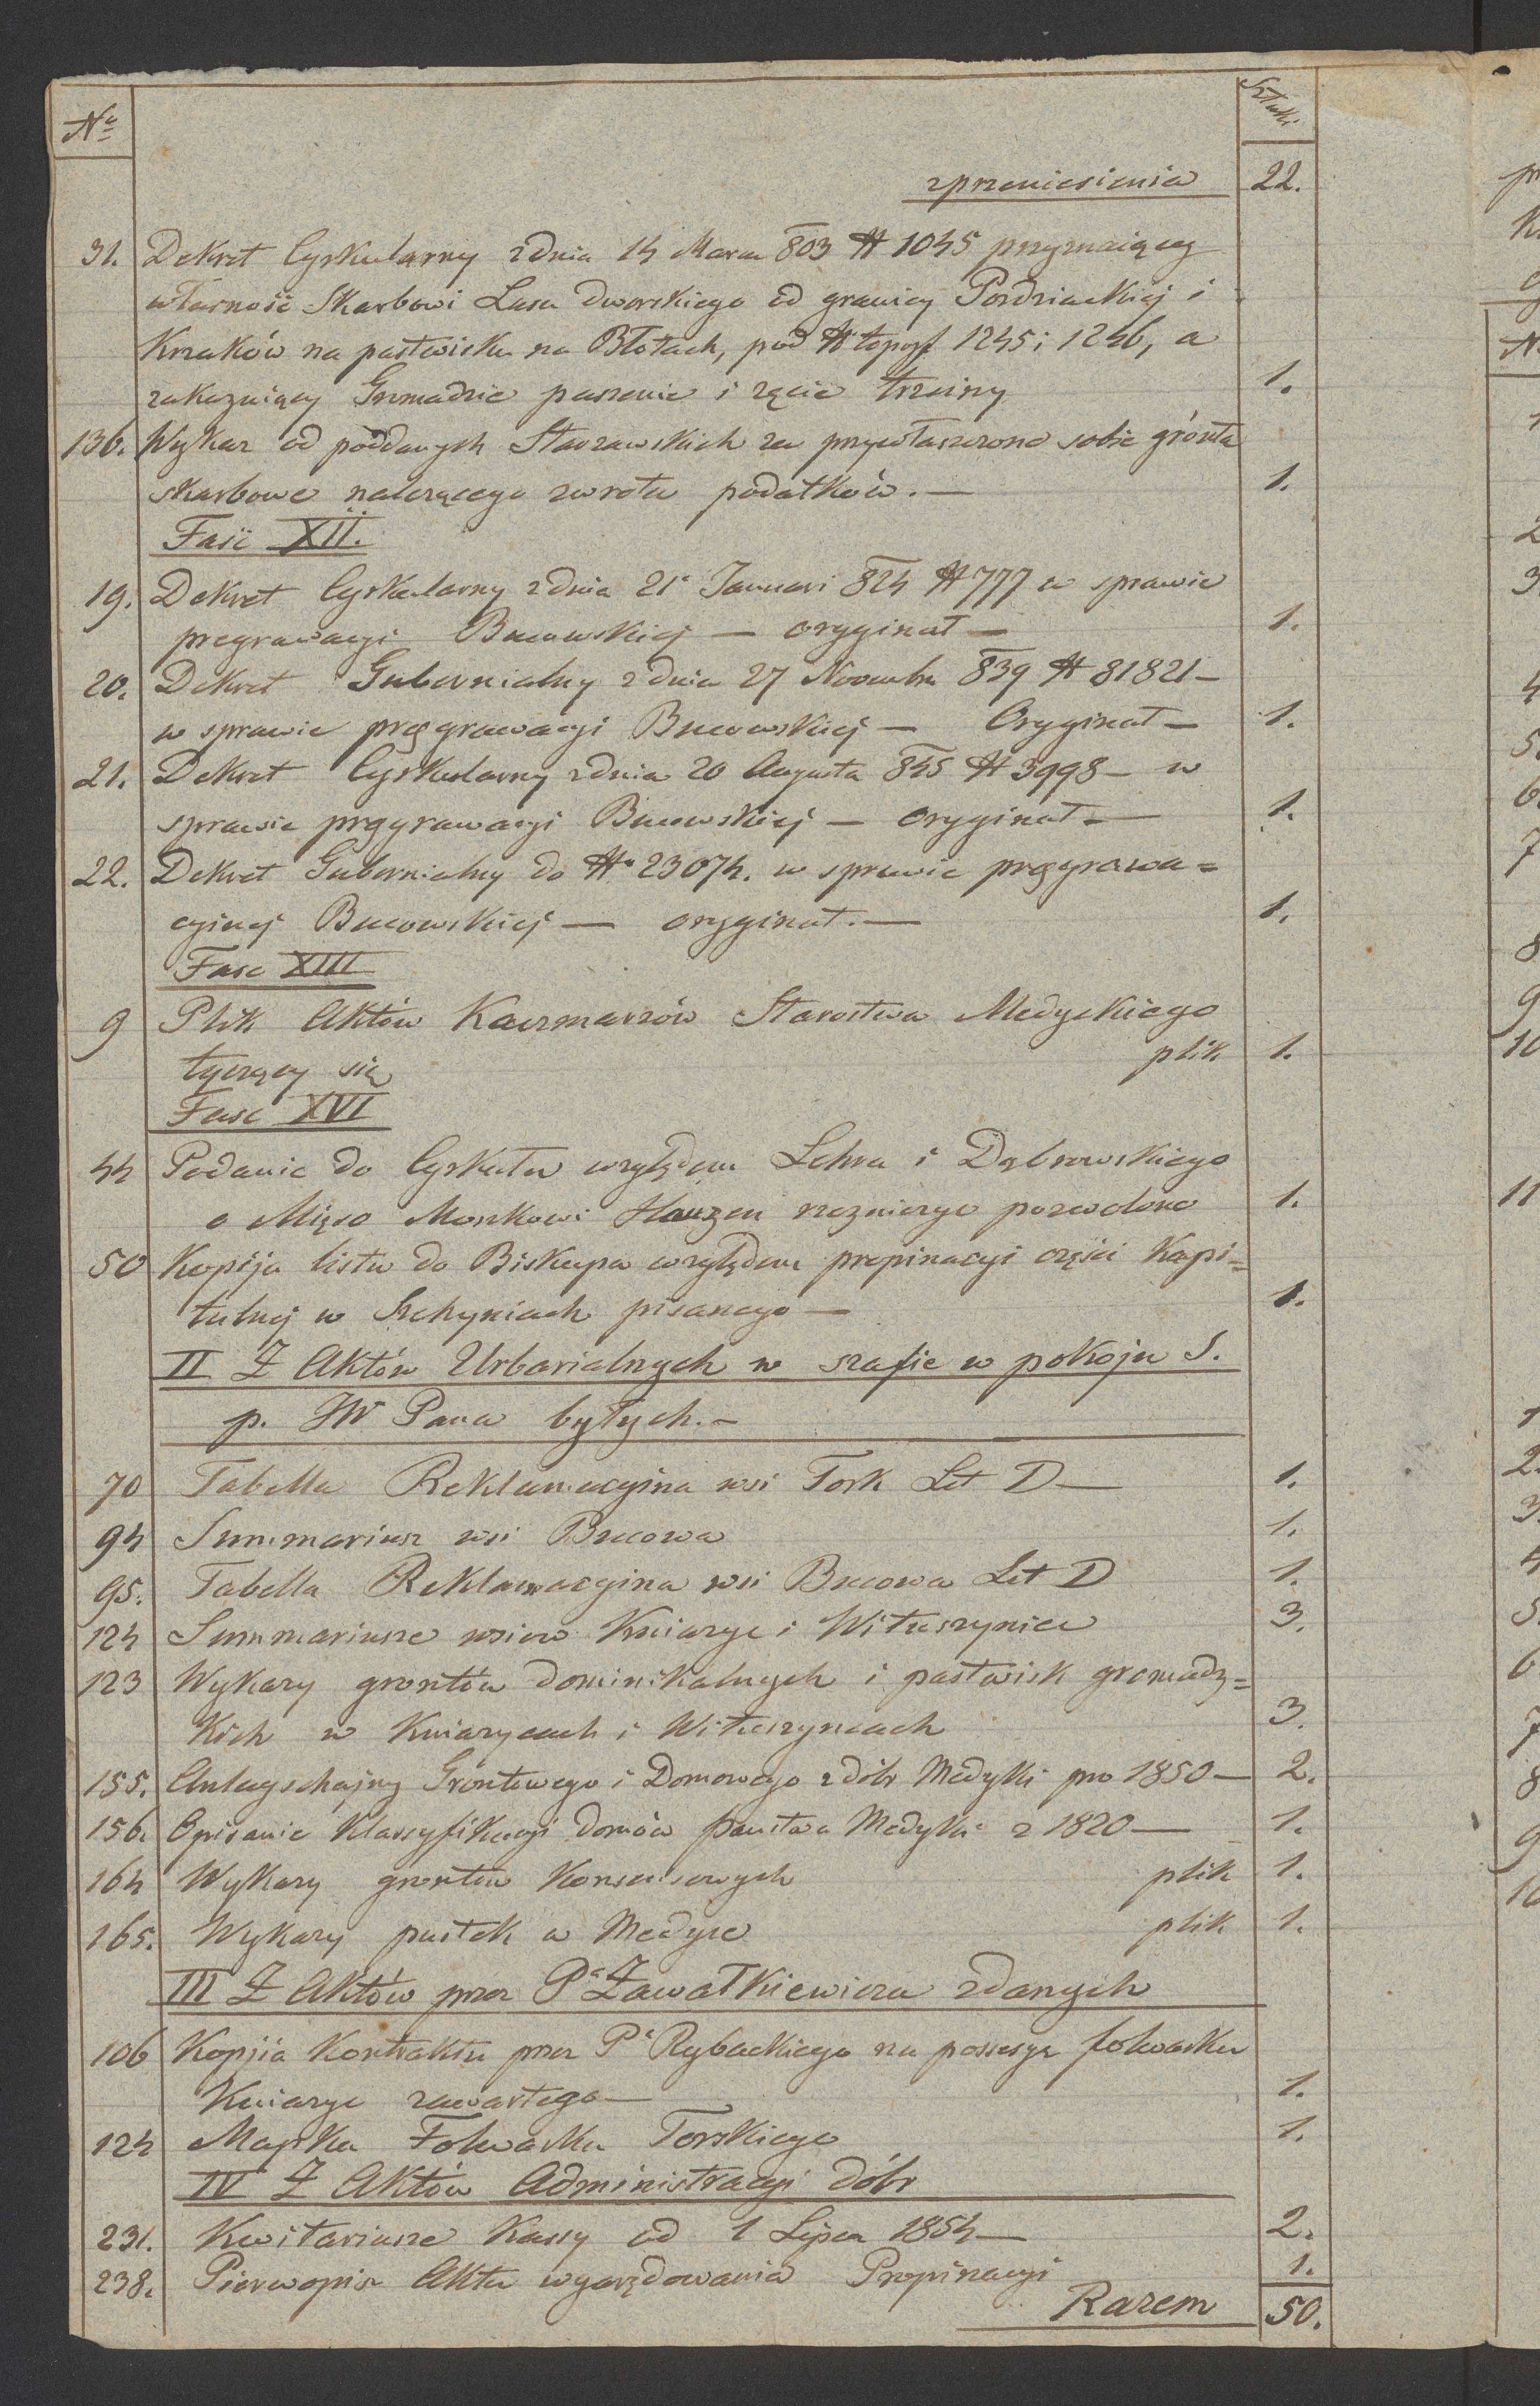 Nº
Sztuki
z przeniesienia 22.
31. Dekret Cyrkularny z dnia 14 Marca 803 N 1045 przyznaiący
własność Skarbowi Lasu dworskiego od granicy Pozdziackiej i
Krzaków na pastwisku na Błotach, pod N topogf 1245 i 1246, a
zakazuiący Gromadzie paszenie i zęcie trzciny 1.
136. Wykaz od poddanych Starzawskich za przywłaszczone sobie grónta
skarbowe należącego zwrotu podatków. — 1.
Fasc XII.
19. Dekret Cyrkularny z dnia 21 Januari 824 N 777 w sprawie
pregrawacyi Bucowskiej — oryginał — 1.
20. Dekret Gubernialny z dnia 27 Novembra 839 N 81821 —
w sprawie pręgrawacyi Bucowskiej — Oryginał — 1.
21. Dekret Cyrkularny z dnia 20 Augusta 845 N 3998 — w
sprawie pręgrawacyi Bucowskiej — oryginał — 1.
22. Dekret Gubernialny do N 23074. w sprawie pręgrawa=
cyinej Bucowskiej — oryginał. — 1.
Fasc XIII
9 Plik Aktów Kaczmarzów Starostwa Medyckiego
tyczący się plik 1.
Fasc XVI
44 Podanie do Cyrkułu względem Lehra i Dąbrowskiego
o Mięso Moszkowi rzezniczyc pozwolone 1.
50 Kopija listu do Biskupa względem propinacyi części Kapi=
tulnej w Szechyniach pisanego — 1.
II Z Aktów Urbarialnych w szafie w pokoju S.
p. JW Pana byłych. —
70 Tabella Reklamacyina wsi Tork Let D — 1.
94 Summariusz wsi Bucowa 1.
95. Tabella Reklamacyina wsi Bucowa Let D 1.
124 Summariusze wsiow Kniazyc i Wituszyniec 3.
123 Wykazy grontów dominikalnych i pastwisk gromadz=
kich w Kniazycach i Wituszyncach 3.
155. Antagschajny Gróntowego i Domowego z dóbr Medyki pro 1850 — 2.
156. Opisanie Klassyfikacyi domów państwa Medyki z 1820 — 1.
164 Wykazy grontów Konsensowych plik 1.
165. Wykazy pustek w Medyce plik 1.
III Z Aktów przez Pª Zawałkiewicza zdanych
106 Kopjia Kontraktu przez Pª Rybackiego na possesyę folwarku
Kniazyc zawartego — 1.
124 Mapka Folwarku Torskiego 1.
IV Z Aktów Administracyi dóbr
231. Kwitariusze Kassy od 1 Lipca 1854 — 2.
238. Pierwopis Aktu wyarędowania Propinacyi 1.
Razem 50.